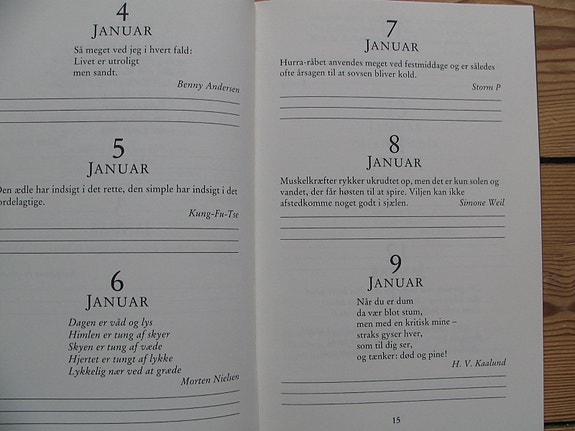 4
JANUAR
Så meget ved jeg i hvert fald:
Livet er utroligt
men sandt.
Benny Andersen
5
JANUAR
Den ædle har indsigt i det rette, den simple har indsigt i det
fordelagtige.
Kung-Fu-Tse
6
JANUAR
Dagen er våd og lys
Himlen er tung af skyer
Skyen er tung af væde
Hjertet er tungt af lykke
Lykkelig nær ved at græde
Morten Nielsen
7
JANUAR
Hurra-råbet anvendes meget ved festmiddage og er således
ofte årsagen til at sovsen bliver kold.
Storm P
8
JANUAR
Muskelkræfter rykker ukrudtet op, men det er kun solen og
vandet, der får høsten til at spire. Viljen kan ikke
afstedkomme noget godt i sjælen. Simone Weil
9
JANUAR
Når du er dum
da vær blot stum,
men med en kritisk mine –
straks gyser hver,
som til dig ser,
og tænker: død og pine!
H. V. Kaalund
15